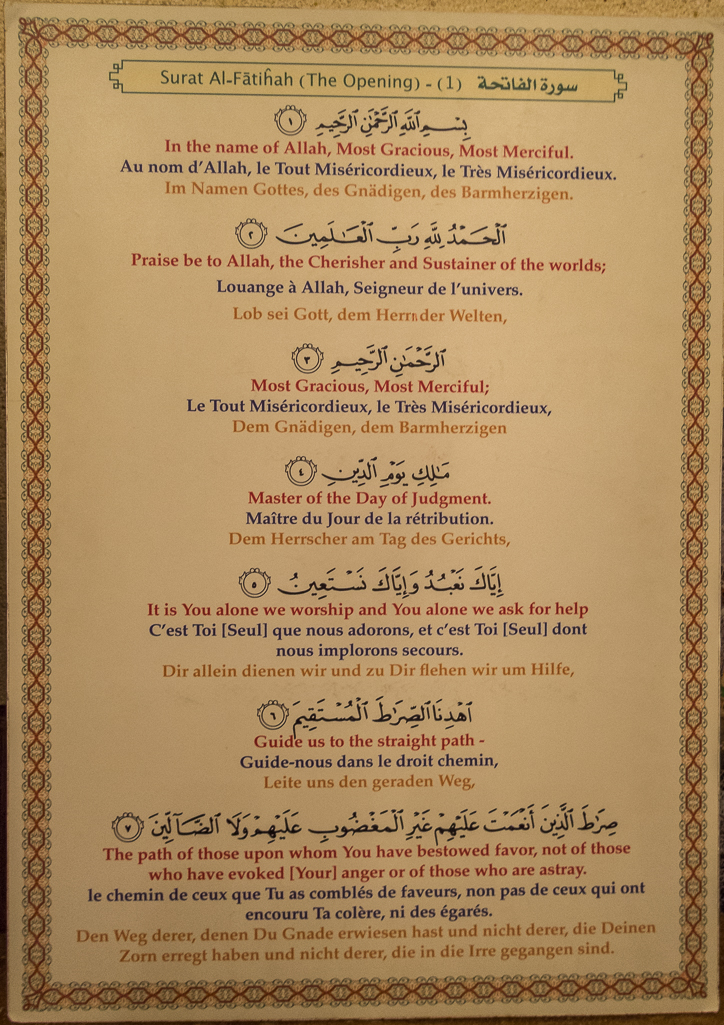 Surat Al-Fātiĥah (The Opening) - (1) سورة الفاتحة
بِسْمِ ٱللَّهِ ٱلرَّحْمَٰنِ ٱلرَّحِيمِ ١
In the name of Allah, Most Gracious, Most Merciful.
Au nom d’Allah, le Tout Miséricordieux, le Très Miséricordieux.
Im Namen Gottes, des Gnädigen, des Barmherzigen.
ٱلْحَمْدُ لِلَّهِ رَبِّ ٱلْعَٰلَمِينَ ٢
Praise be to Allah, the Cherisher and Sustainer of the worlds;
Louange à Allah, Seigneur de l’univers.
Lob sei Gott, dem Herrn der Welten,
ٱلرَّحْمَٰنِ ٱلرَّحِيمِ ٣
Most Gracious, Most Merciful;
Le Tout Miséricordieux, le Très Miséricordieux,
Dem Gnädigen, dem Barmherzigen
مَٰلِكِ يَوْمِ ٱلدِّينِ ٤
Master of the Day of Judgment.
Maître du Jour de la rétribution.
Dem Herrscher am Tag des Gerichts,
إِيَّاكَ نَعْبُدُ وَإِيَّاكَ نَسْتَعِينُ ٥
It is You alone we worship and You alone we ask for help
C’est Toi [Seul] que nous adorons, et c’est Toi [Seul] dont
nous implorons secours.
Dir allein dienen wir und zu Dir flehen wir um Hilfe,
ٱهْدِنَا ٱلصِّرَٰطَ ٱلْمُسْتَقِيمَ ٦
Guide us to the straight path -
Guide-nous dans le droit chemin,
Leite uns den geraden Weg,
صِرَٰطَ ٱلَّذِينَ أَنْعَمْتَ عَلَيْهِمْ غَيْرِ ٱلْمَغْضُوبِ عَلَيْهِمْ وَلَا ٱلضَّآلِّينَ ٧
The path of those upon whom You have bestowed favor, not of those
who have evoked [Your] anger or of those who are astray.
le chemin de ceux que Tu as comblés de faveurs, non pas de ceux qui ont
encouru Ta colère, ni des égarés.
Den Weg derer, denen Du Gnade erwiesen hast und nicht derer, die Deinen
Zorn erregt haben und nicht derer, die in die Irre gegangen sind.